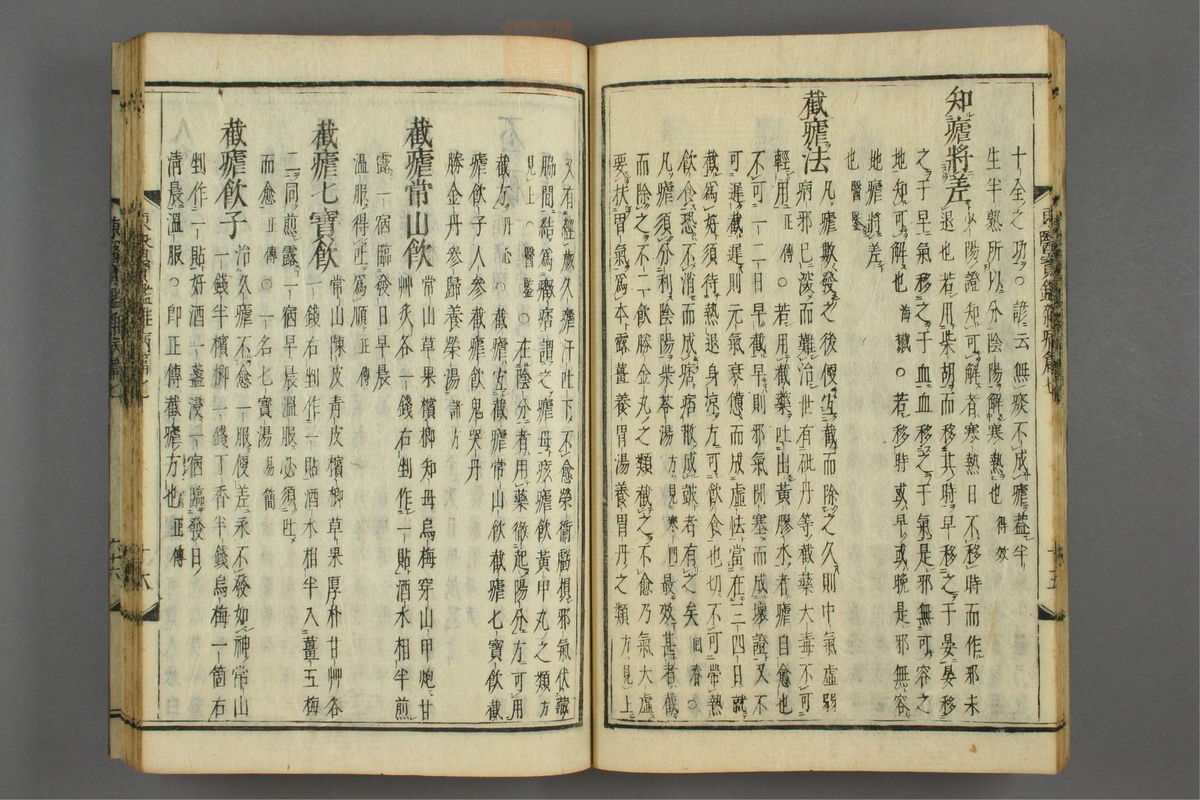 十全之功○諺云無痰不成瘧盖半
生半熟所以分陰陽解寒熱也得効
知瘧將差
少陽證知可解者寒熱日不移時而作邪未
退也若用柴胡而移其時早移之于晏晏移
之于早氣移之于血血移之于氣是邪無可容之
地知可解也海藏○若移時或早或晚是邪無容
地瘧將差
也醫鑒
截瘧法
凡瘧數發之後便宜截而除之久則中氣虛弱
病邪已深而難治世有砒丹等截藥大毒不可
輕用正傳○若用截藥吐出黃膠水者瘧自愈也
不可一二日早截早則邪氣閉塞而成壞證又不
可遲截遲則元氣衰憊而成虛怯當在三四日就
截爲好須待熱退身凉方可飲食也切不可帶熱
飲食恐不消而成痞痞散成鼓者有之矣回春○
凡瘧須分利陰陽柴苓湯方見寒門最效甚者截
而除之不二飲勝金丸之類截之不愈乃氣大虛
要扶胃氣爲本露薑養胃湯養胃丹之類方見上
又有經歲久瘧汗吐下不愈榮衛虧損邪氣伏藏
脇間結爲癥痞謂之瘧母老瘧飲黃甲丸之類方
見上醫鑒○在陰分者用藥徹起陽分方可用
截方丹心○宜截瘧常山飲截瘧七寶飲截
瘧飲子人參截瘧飲鬼哭丹
勝金丹參歸養榮湯諸方
截瘧常山飲
常山草果檳榔知母烏梅穿山甲炮甘
艸灸各一錢右剉作一貼酒水相半煎
露一宿臨發日早晨
溫服得吐爲順正傳
截瘧七寶飲
常山陳皮青皮檳榔草果厚朴甘艸各
一錢右剉作一貼酒水相半入薑五梅
二同煎露一宿早晨溫服必須吐
而愈正傳○一名七寶湯簡
截瘧飲子
治久瘧不愈一服便差永不發如神常山
一錢半檳榔一錢丁香半錢烏梅一箇右
剉作一貼好酒一盞浸一宿臨發日
淸晨溫服○卽正傳截瘧方也正傳